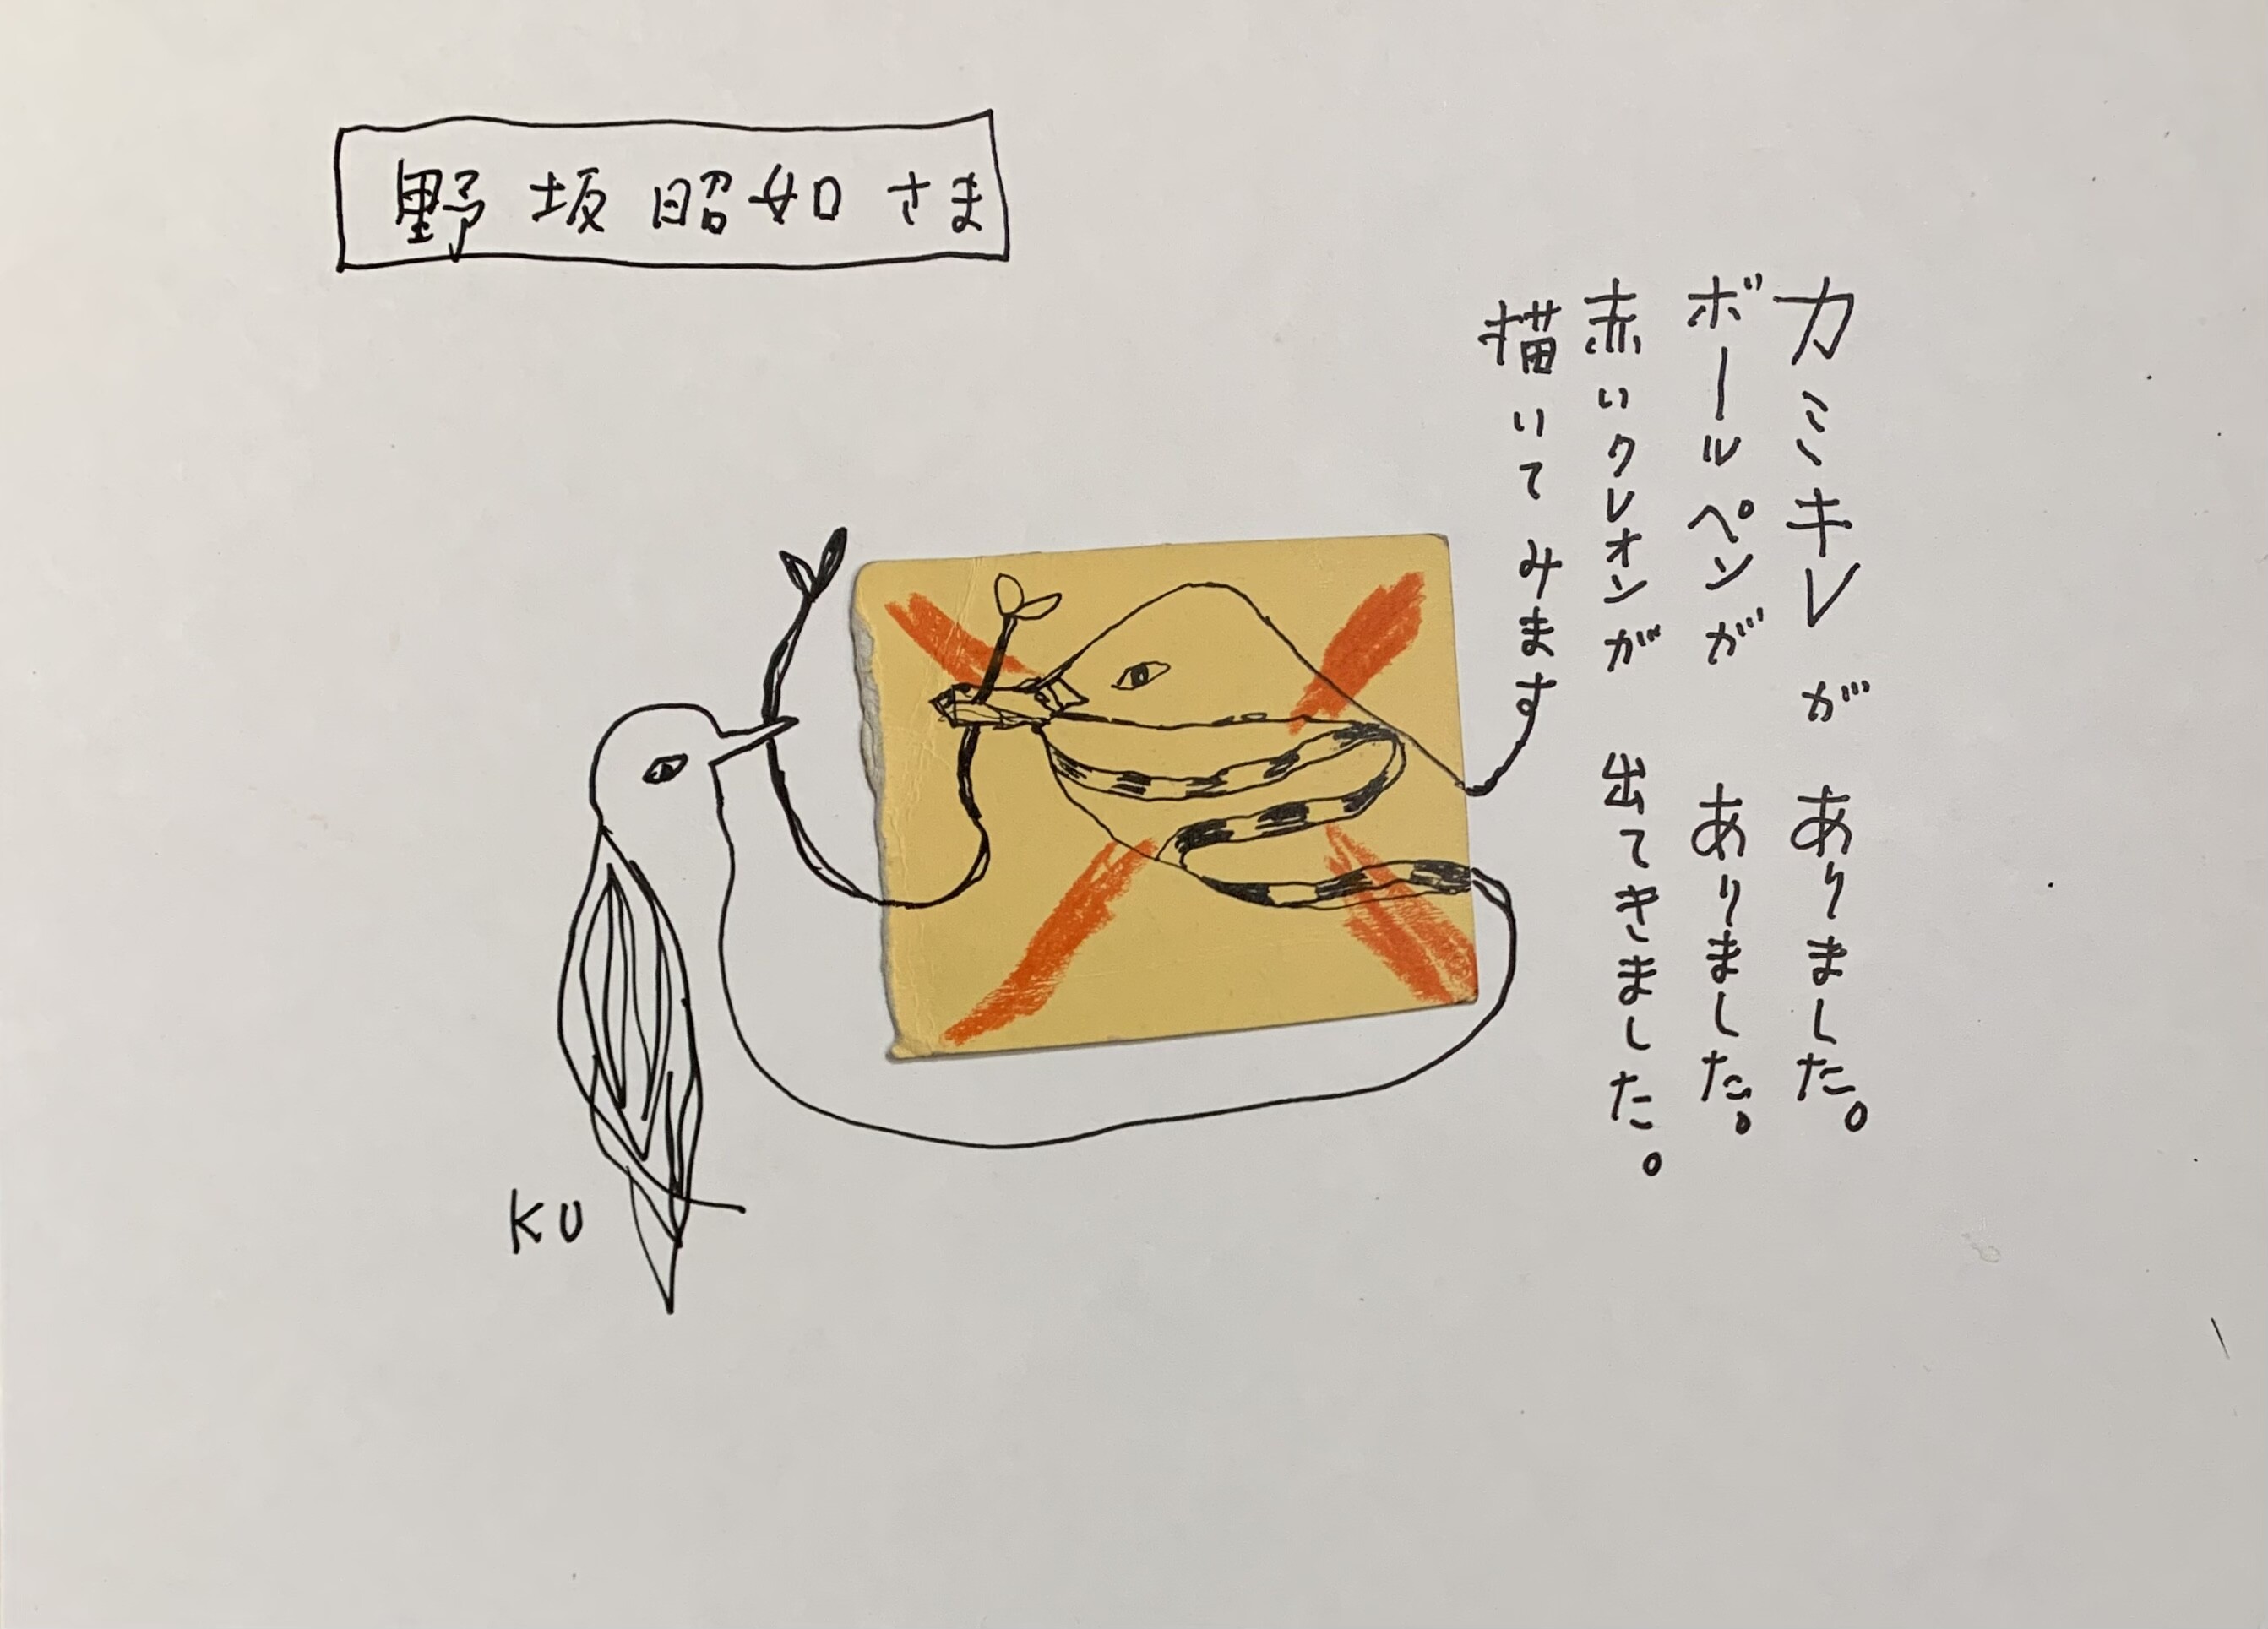 野坂昭如さま
カミキレが ありました。
ボールペンが ありました。
赤いクレオンが 出てきました。
描いてみます
KU